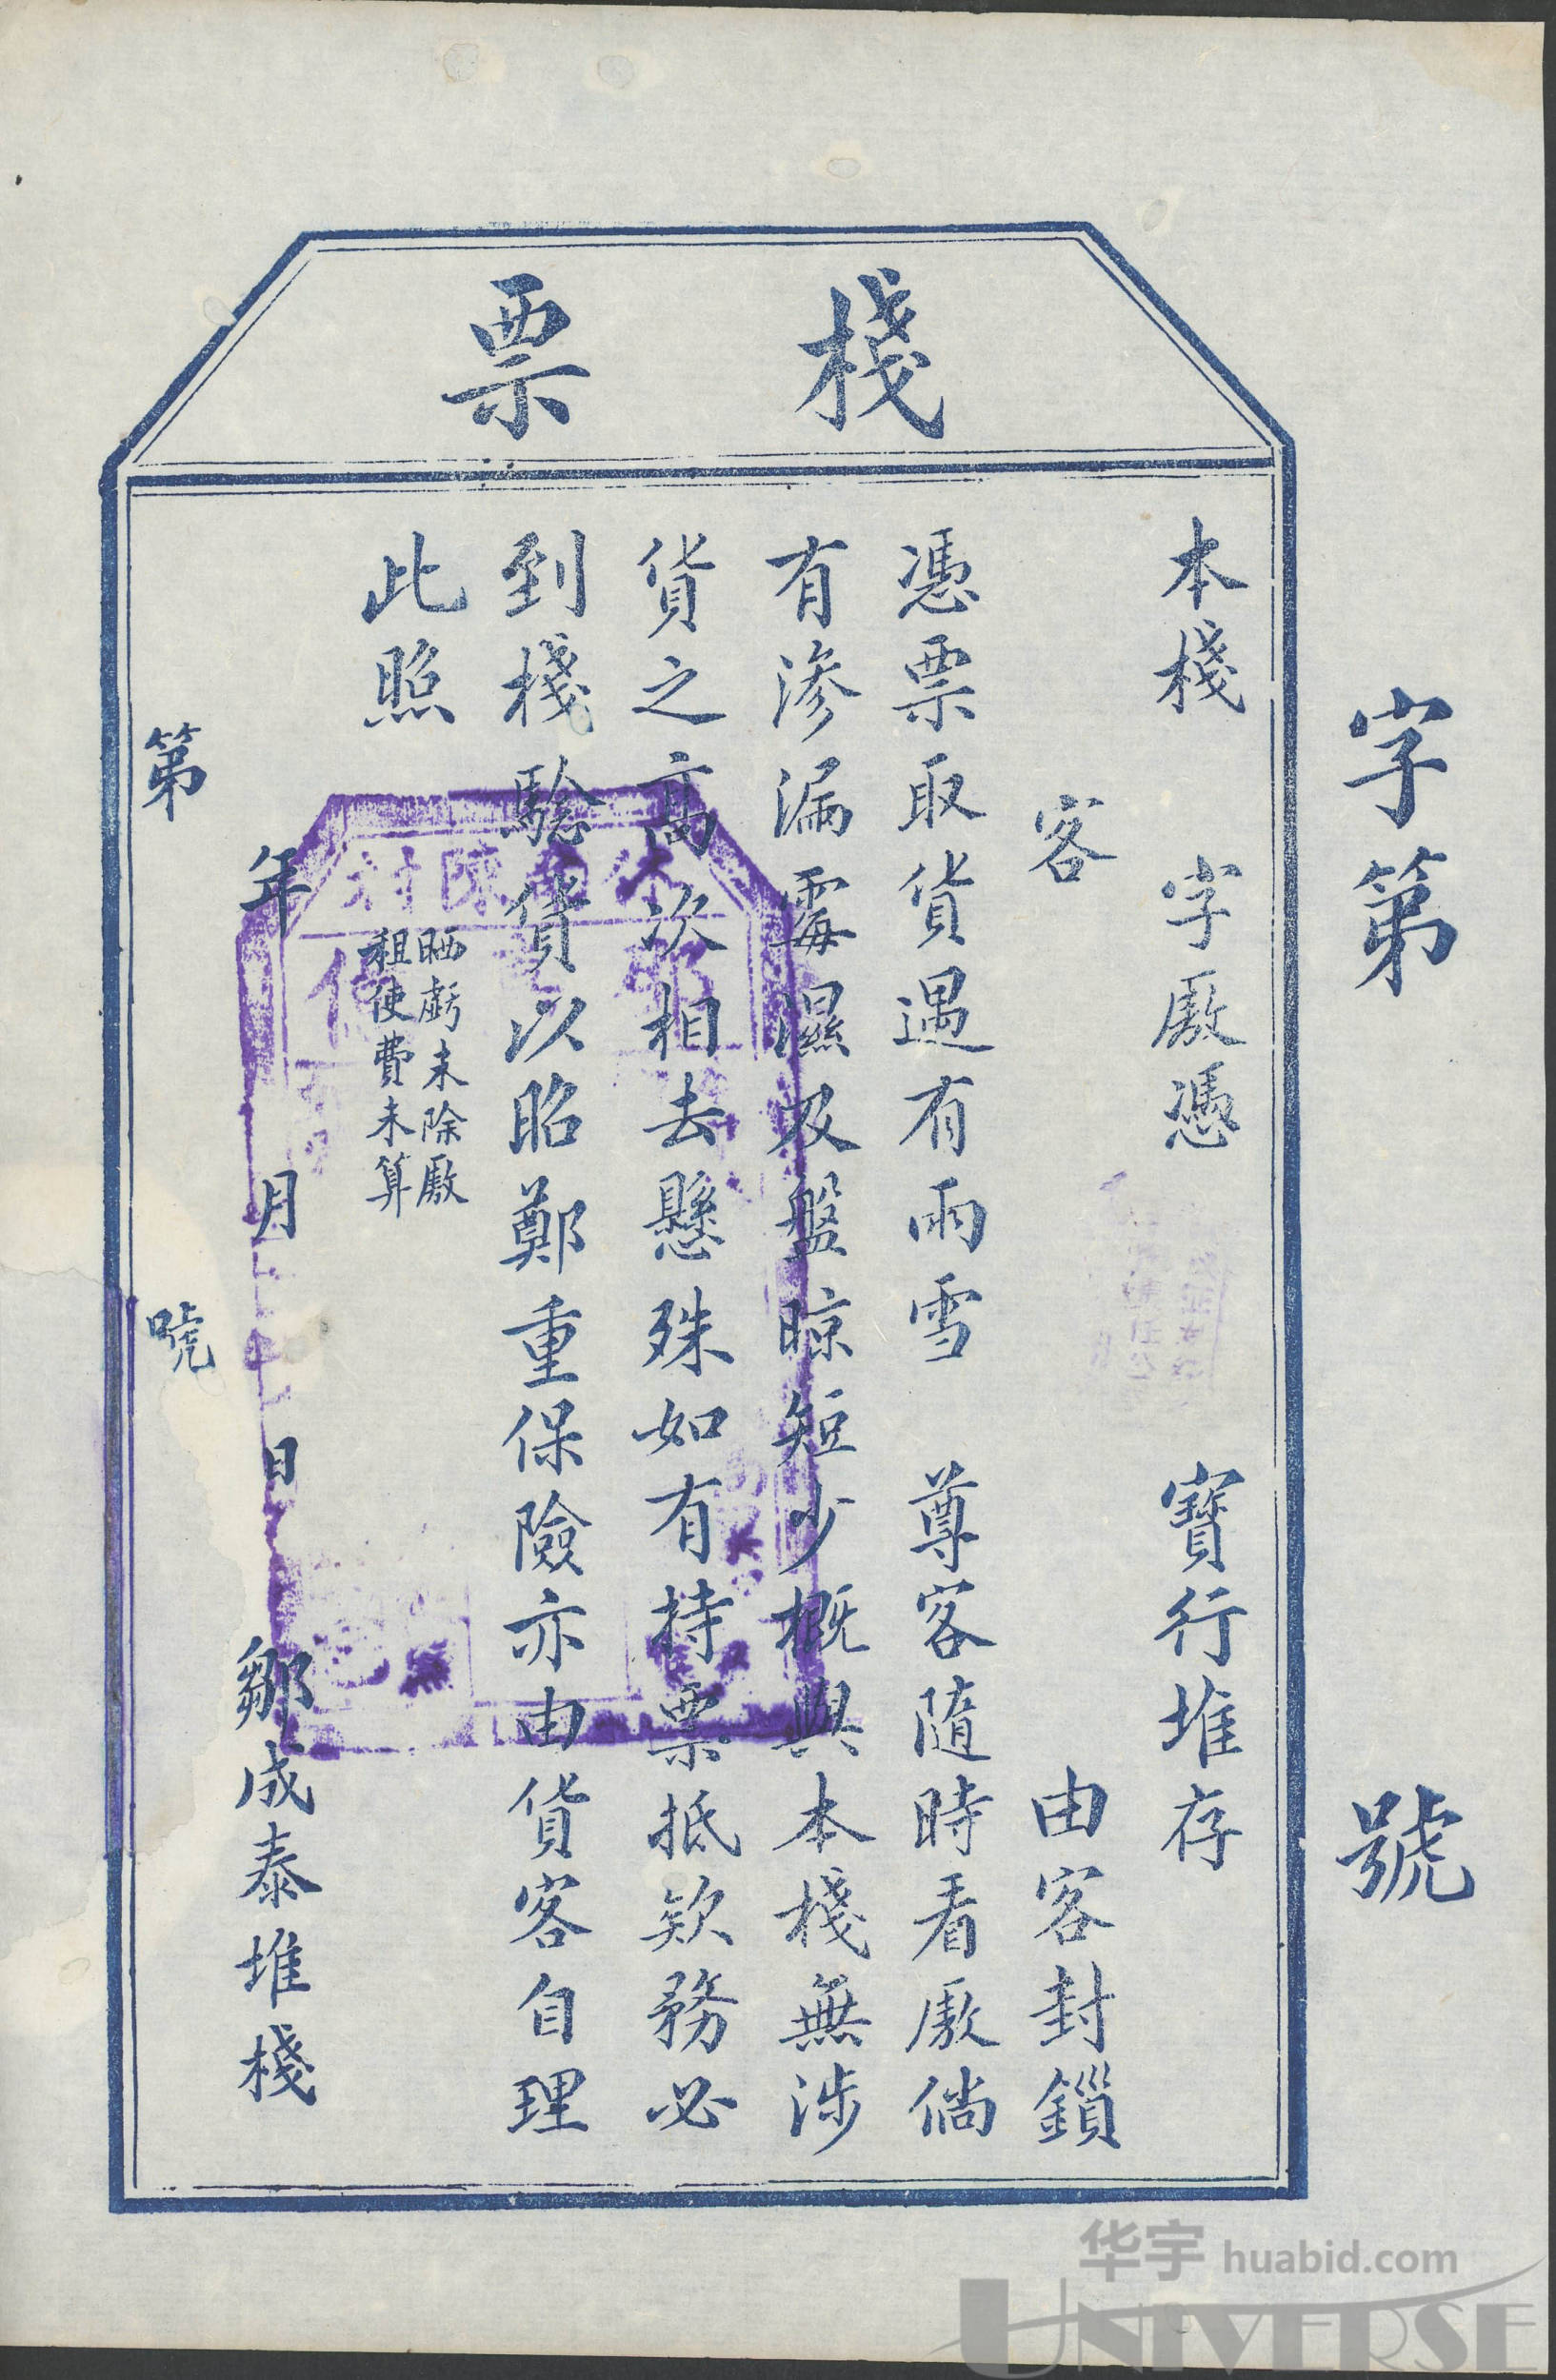 字第　號
棧票
本棧　字廒憑　寶行堆存
客　由客封鎖
憑票取貨遇有雨雪　尊客隨時看廒倘
有滲漏霉濕及盤晾短少概與本棧無涉
貨之高次相去懸殊如有持票抵欵務必
到棧驗貨以昭鄭重保險亦由貨客自理
此照
晒虧未除廒
租使費未算
年　月　日　鄒成泰堆棧
第　號
华宇 huabid.com
UNIVERSE